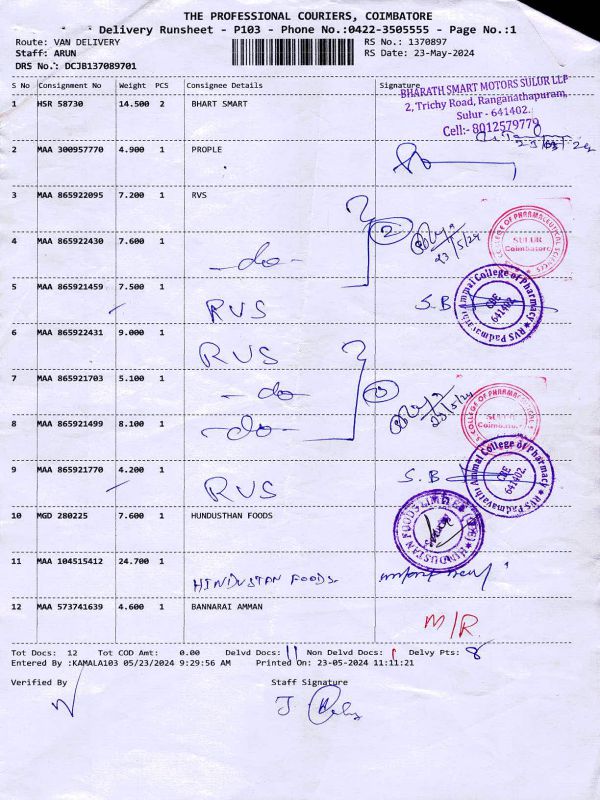 THE PROFESSIONAL COURIERS, COIMBATORE
Delivery Runsheet - P103 - Phone No.:0422-3505555 - Page No.:1
Route: VAN DELIVERY RS No.: 1370897
Staff: ARUN RS Date: 23-May-2024
DRS No.: DCJB137089701
S No Consignment No Weight PCS Consignee Details Signature
BHARATH SMART MOTORS SULUR LLP
2, Trichy Road, Ranganathapuram,
Sulur - 641402.
Cell:- 8012579779
1 HSR 58730 14.500 2 BHART SMART
2 MAA 300957770 4.900 1 PROPLE
3 MAA 865922095 7.200 1 RVS
2
23/5/24
COLLEGE OF PHARMACEUTICAL SCIENCES
SULUR
Coimbatore
4 MAA 865922430 7.600 1 -do-
5 MAA 865921459 7.500 1 RVS S.B
RVS Padmavathi Ammal College of Pharmacy
CBE
641402.
6 MAA 865922431 9.000 1 RVS
7 MAA 865921703 5.100 1 -do-
23/5/24
COLLEGE OF PHARMACEUTICAL
Coimbatore
8 MAA 865921499 8.100 1 -do-
9 MAA 865921770 4.200 1 RVS S.B
RVS Padmavathi Ammal College of Pharmacy
CBE
641402.
10 MGD 280225 7.600 1 HUNDUSTHAN FOODS
HINDUSTAN FOODS LIMITED
11 MAA 104515412 24.700 1 HINDUSTAN FOODS
12 MAA 573741639 4.600 1 BANNARAI AMMAN M/R.
Tot Docs: 12 Tot COD Amt: 0.00 Delvd Docs: 11 Non Delvd Docs: 1 Delvy Pts: 8
Entered By :KAMALA103 05/23/2024 9:29:56 AM Printed On: 23-05-2024 11:11:21
Verified By Staff Signature